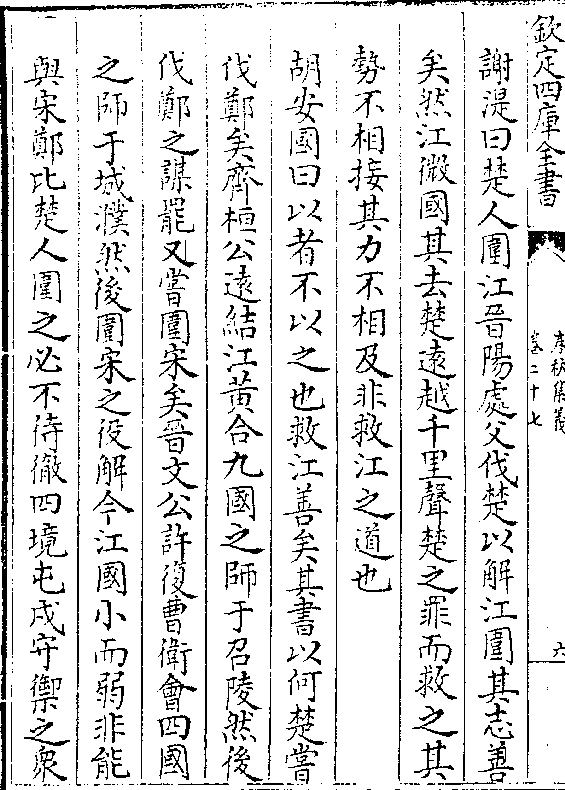 欽定四庫全書
春秋集義
卷二十七
六
謝湜曰楚人圍江晉陽處父伐楚以解江圍其志善
矣然江微國其去楚遠越千里聲楚之罪而救之其
勢不相接其力不相及非救江之道也
胡安國曰以者不以之也救江善矣其書以何楚嘗
伐鄭矣齊桓公遠結江黃合九國之師于召陵然後
伐鄭之謀罷又嘗圍宋矣晉文公許復曹衛會四國
之師于城濮然後圍宋之役解今江國小而弱非能
與宋鄭比楚人圍之必不待徹四境屯戍守禦之衆